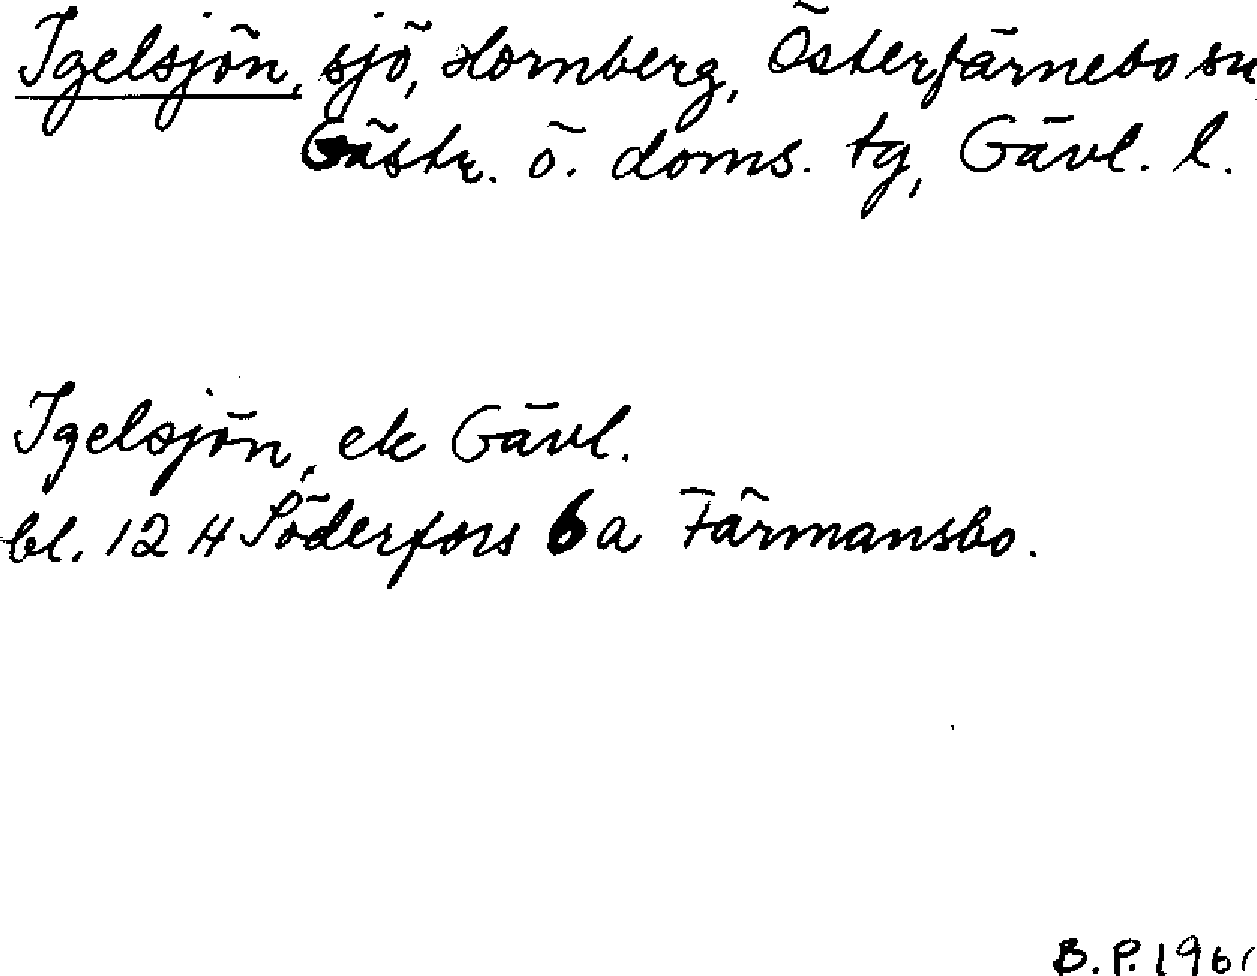 Igelsjön, sjö, Hornberg, Österfärnebo sn
Gästr. ö. doms. tg, Gävl. l.
Igelsjön, ek Gävl.
bl. 12 H Söderfors 6 a Färmansbo.
B. P. 196